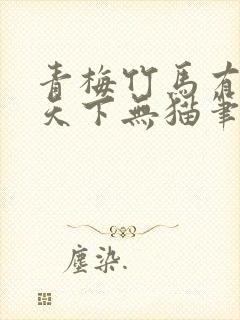 青梅竹馬有
天下無猫筆
塵染.